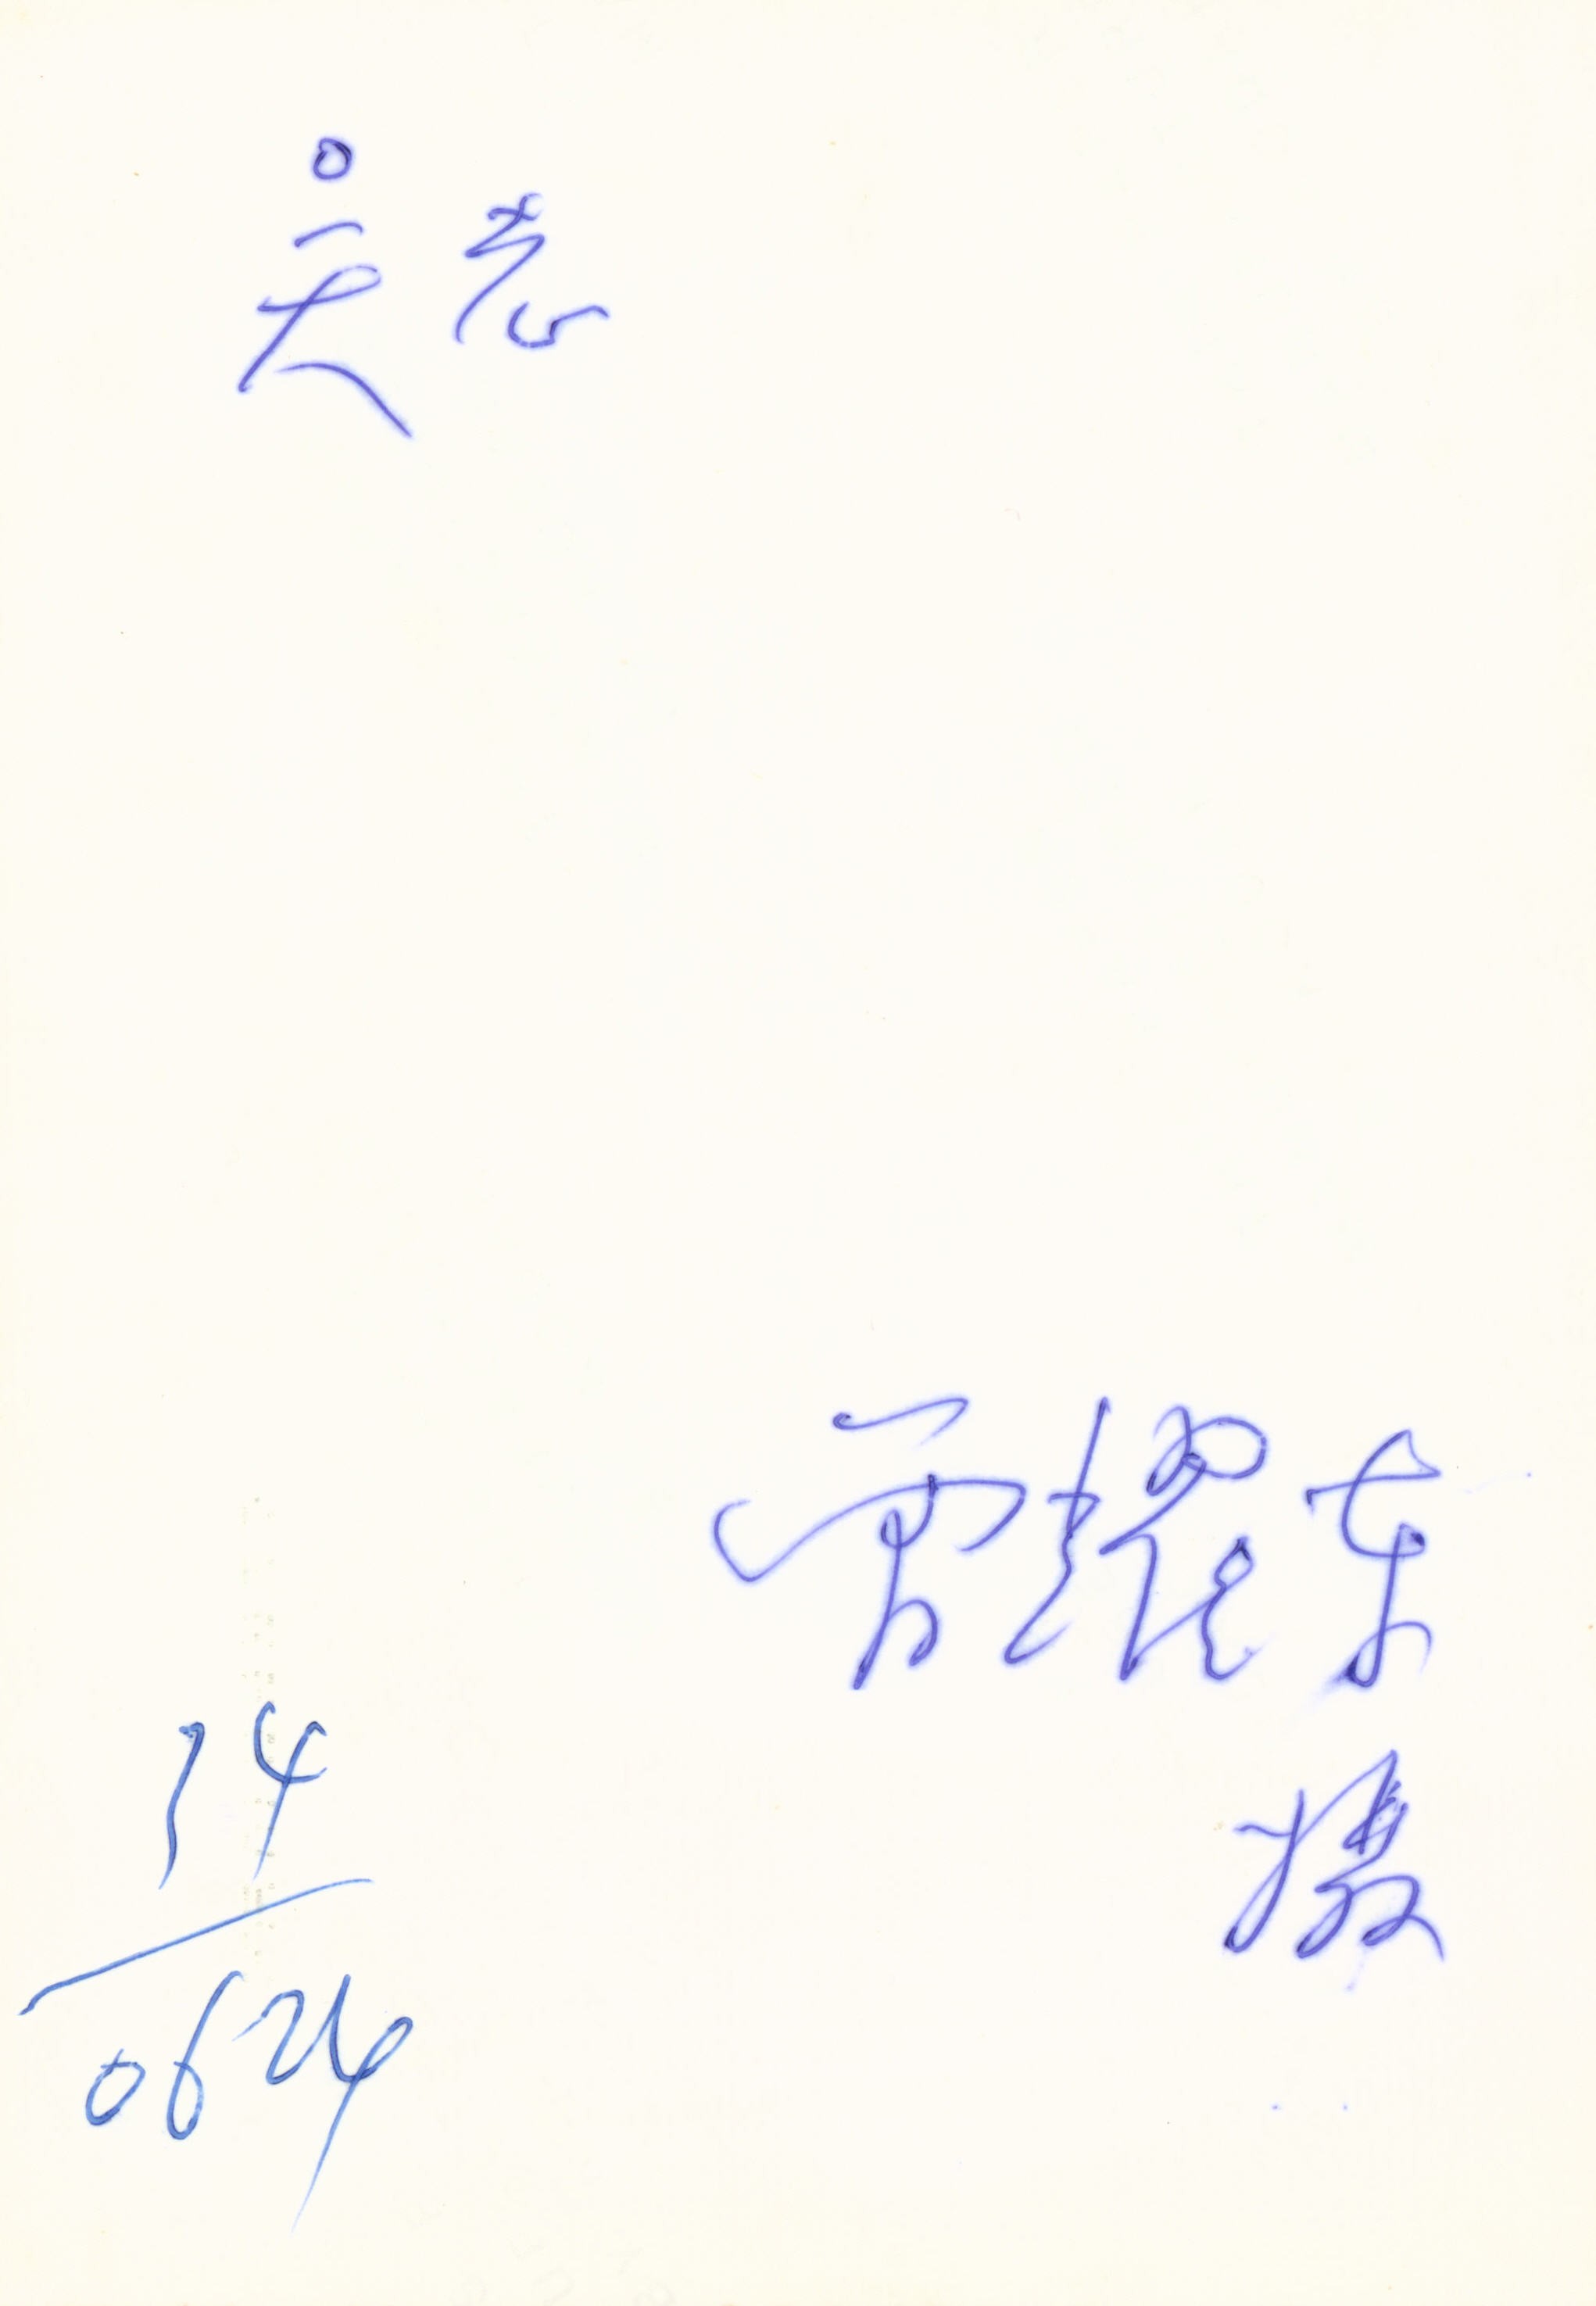 吴老
雷耀东
摄
14
0624